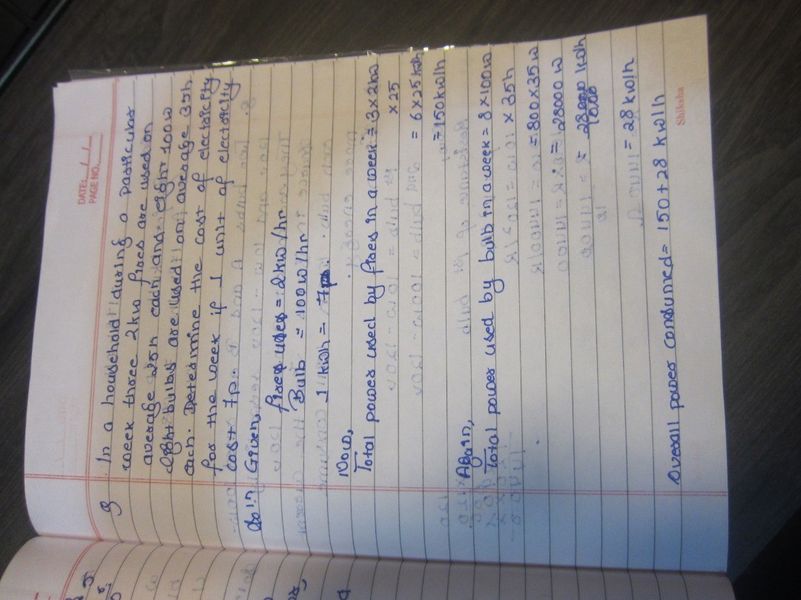 DATE: / /
PAGE NO.
9 In a household during a particular
week three 2kw fires are used on
average 25h each and eight 100w
light bulbs are used on average 35h
each. Determine the cost of electricity
for the week if 1 unit of electricity
cost 7p.
Given,
fires used = 2kw/hr
Bulb = 100w/hr
1 kwh = 7p.
Now,
Total power used by fires in a week = 3×2kw
×25
= 6×25kwh
= 150kw/h
Again,
Total power used by bulb in a week = 8×100w
× 35h
= 800×35w
= 28000 w
= 28000 kwh
1000
= 28 kw/h
Overall power consumed = 150+28 kw/h
Shiksha